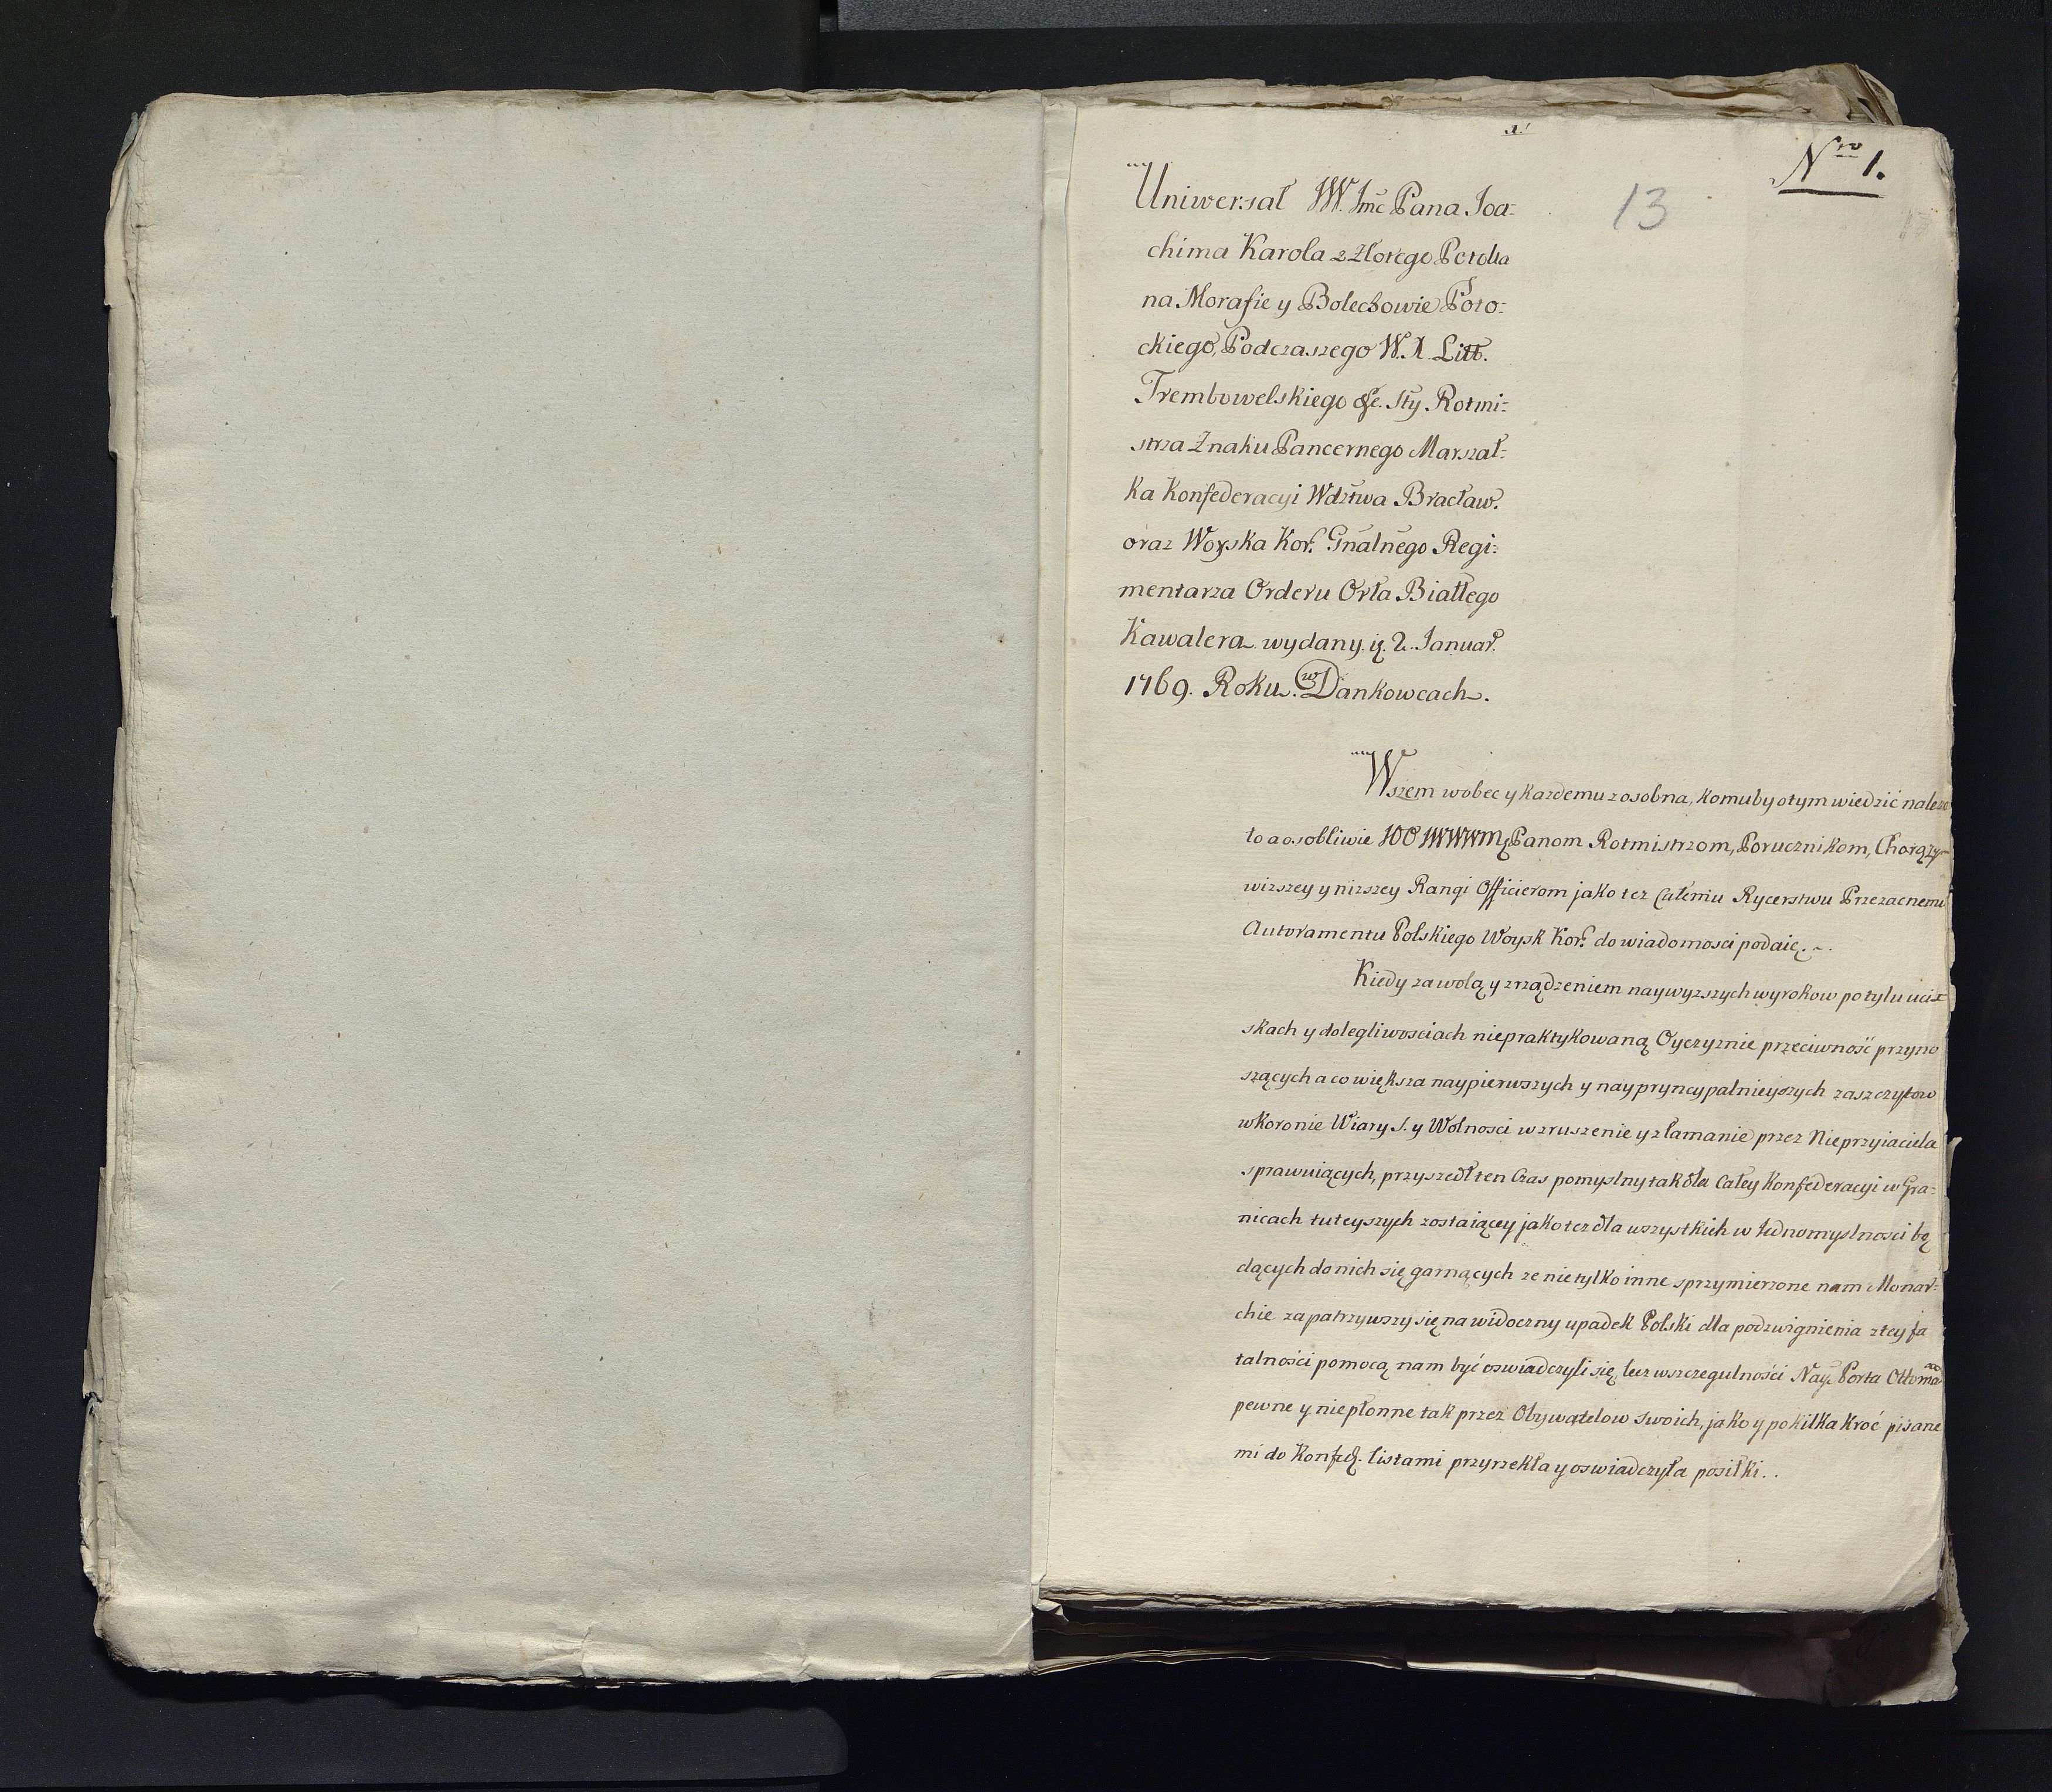 1.
Nro 1.
13
Uniwersał JW. Jmć Pana Joa-
chima Karola z Złotego Potoka
na Morafie y Bolechowie Poto-
ckiego, Podczaszego W. X. Litt.
Trembowelskiego &c. Sty Rotmi-
strza Znaku Pancernego Marszał-
ka Konfederacyi Wdztwa Bracław.
oraz Woyska Kor. Gnalnego Regi-
mentarza Orderu Orła Białłego
Kawalera wydany 2. Januar.
1769. Roku. w Dankowcach.
Wszem wobec y Kazdemu zosobna, komuby otym wiedzić naleze
to a osobliwie Panom Rotmistrzom, Porucznikom, Chorązy
wizszey y nizszey Rangi Officierom jako tez Całemu Rycerstwu Przezacnemu
Autoramentu Polskiego Woysk Kor. do wiadomosci podaię.
Kiedy zawolą y zrządzeniem naywyzszych wyrokow po tylu uci-
skach y dolegliwosciach niepraktykowaną Oyczyznie przeciwność przyno
szących a co większa naypierwszych y naypryncypalnieyszych zaszczytow
w Koronie Wiary S. y Wolnosci wzruszenie y złamanie przez Nieprzyiaciela
sprawuiących, przyszedł ten Czas pomyslny tak dla Całey Konfederacyi w Gra-
nicach tuteyszych zostaiącey jako tez dla wszystkich w Jednomyslnosci bę
dących do nich się garnących ze nie tylko inne sprzymierzone nam Monar-
chie zapatrzywszy się na widoczny upadek Polski dla podzwignienia z tey fa
talności pomocą nam być oswiadczyli się, lecz wszczegulności Nay. Porta Ottoma
pewne y niepłonne tak przez Obywatelow swoich, jako y po kilka kroć pisane
mi do Konfed. listami przyrzekła y oswiadczyła posiłki..